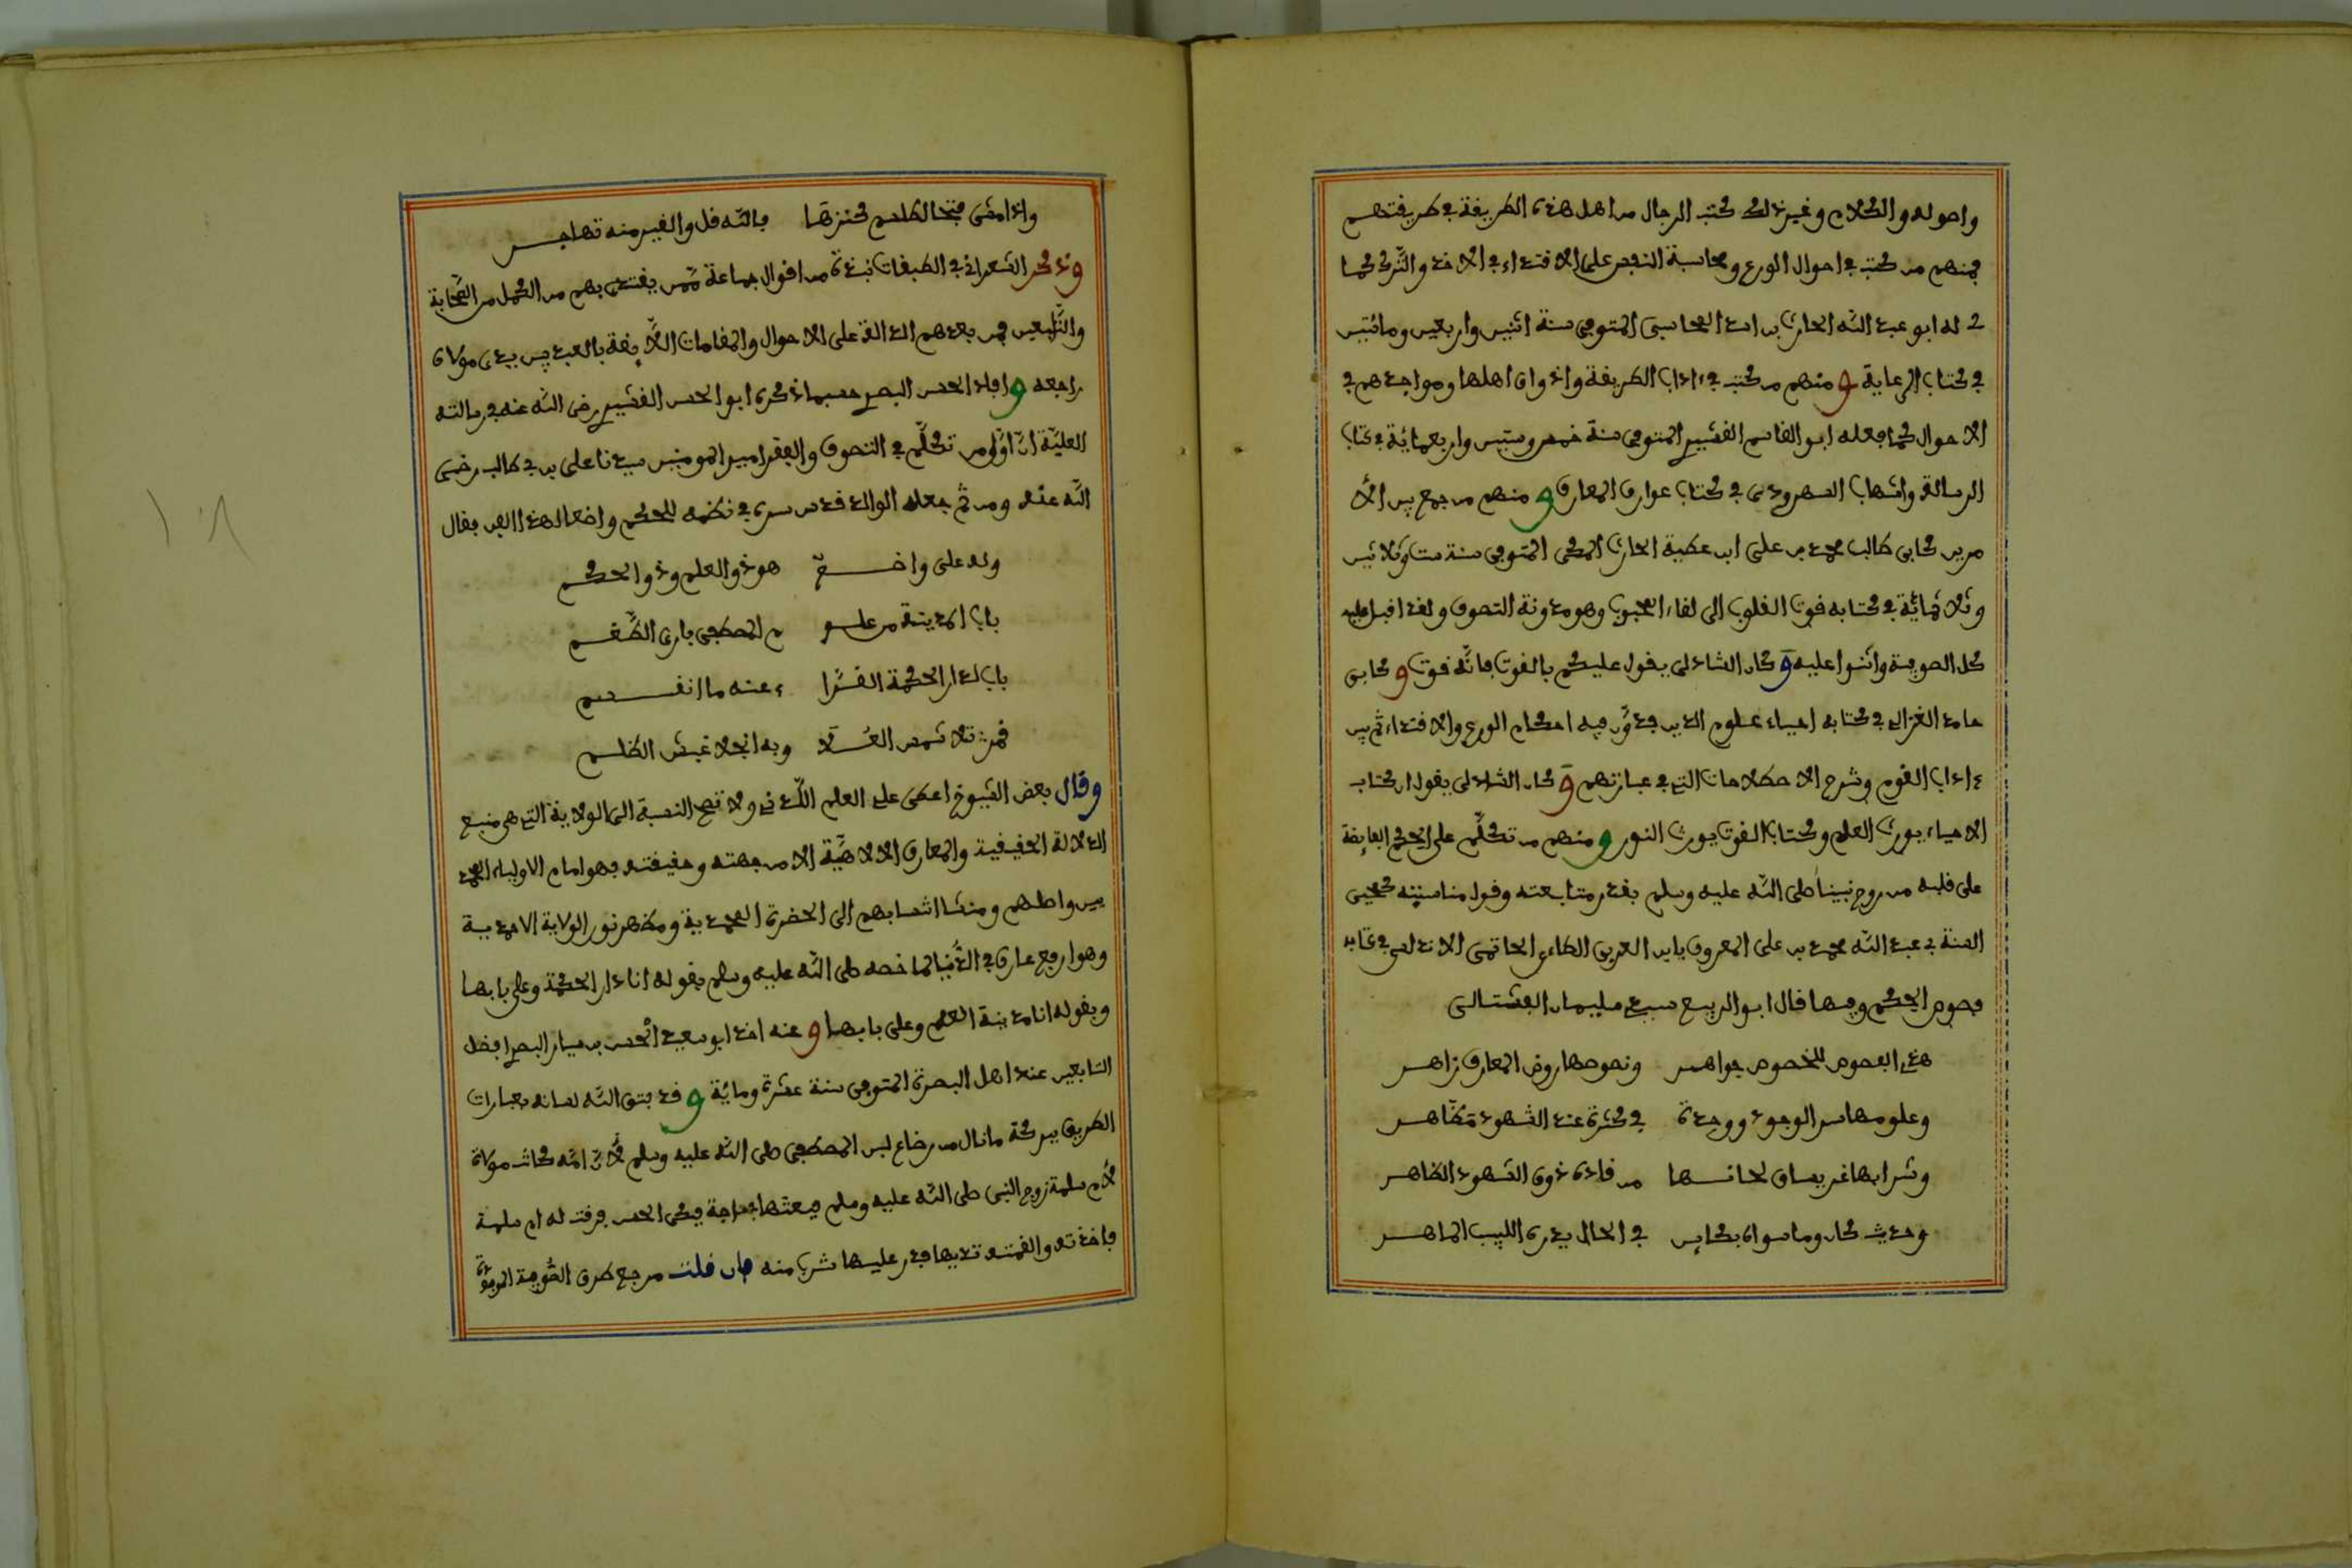 واصوله والكلام وغير ذلك كتب الرجال من اهل هذه الطريقة في طريقتهم
فمنهم من كتب في احوال الورع ومحاسبة النفس على الاقتداء في الاخذ والترك كما
له ابو عبد الله الحارث بن اسد المحاسبي المتوفى سنة اثنين واربعين ومائتين
في كتاب الرعاية ومنهم من كتب في ءاداب الطريقة واذواق اهلها ومواجدهم في
الاحوال كما فعله ابو القاسم القشيري المتوفى سنة خمس وستين واربعمائة في كتاب
الرسالة والشهاب السهروردي في كتاب عوارف المعارف ومنهم من جمع بين الأ
مرين كابي طالب محمد بن علي ابن عطية الحارث المكي المتوفى سنة ست وثلاثين
وثلاثمائة في كتابه قوت القلوب الى لقاء المحبوب وهو مدونة التصوف ولقد اقبل عليه
كل الصوفية واثنوا عليه وكان الشاذلي يقول عليكم بالقوت فانه قوت وكابي
حامد الغزالي في كتابه احياء علوم الدين فدون فيه احكام الورع والاقتداء ثم بين
ءاداب القوم وشرح الاصطلاحات التي في عبارتهم وكان الشاذلي يقول ان كتاب
الاحياء يورث العلم وكتاب القوت يورث النور ومنهم من تكلم على الحكم الفايضة
على قلبه من روح نبينا صلى الله عليه وسلم بقدر متابعته وقول مناسبته كمحيي
السنة ابي عبد الله محمد بن علي المعروف بابن العربي الطاءي الحاتمي الاندلسي في كتابه
فصوص الحكم وفيها قال ابو الربيع سيدي سليمان الفشتالي
هذي الفصوص للخصوص جواهر ونصوصها روض المعارف زاهر
وعلومها سر الوجود ووحدة في كثرة عند الشهود تظاهر
وشرابها غر يساق لحانها من قاده ذوق الشهود الظاهر
وحديث كان وما سواه بكاين في الحال يدري اللبيب الماهر
واذا مضى فتحا لطلسم كنزها بالله قل والغير منه تهاجر
وذكر الشعراني في الطبقات نبذة من اقوال جماعة ممن يقتدى بهم من الكمل من الصحابة
والتابعين فمن بعدهم الدالة على الاحوال والمقامات اللايقة بالعبد بين يدي مولاه
راجعه وافاد الحسن البصري حسبما ذكره ابو الحسن القشيري رضي الله عنه في رسالته
العلية ان اول من تكلم في التصوف والفقر امير المومنين سيدنا علي بن ابي طالب رضي
الله عنه ومن ثم جعله الوالد قدس سره في نظمه للحكم واضعا لهذا الفن فقال
ولد علي واضح هو ذو العلم وذو الحكم
باب المدينة من علو م المصطفى باري النسم
باب لدار الحكمة القرا ء عنه ما انفسم
قمر تلا شمس العلا وبه انجلا غبش الظلم
وقال بعض الشيوخ اعطي علي العلم اللدني ولا تصح النسبة الى الولاية التي هي منبع
الدلالة الحقيقية والمعارف الالاهية الا من جهته وحقيقته فهو امام الاولياء المحمد
يين واصلهم ومنشا انتسابهم الى الحضرة المحمدية ومظهر نور الولاية الاحمدية
وهو ارفع عارف في الدنيا لما خصه صلى الله عليه وسلم بقوله انا دار الحكمة وعلي بابها
وبقوله انا مدينة العلم وعلي بابها وعنه اخذ ابو سعيد الحسن بن يسار البصري افضل
التابعين عند اهل البصرة المتوفى سنة عشرة ومائة وقد فتق الله لسانه بعبارات
الطريق ببركة ما نال من رضاع لبن المصطفى صلى الله عليه وسلم لأن امه كانت مولاة
لأم سلمة زوج النبي صلى الله عليه وسلم فبعثتها لحاجة فبكى الحسن فرقت له ام سلمة
فاخذته والقمته ثديها فدر عليها شرب منه فان قلت مرجع طرق الصوفية الموجودة
١٠٨